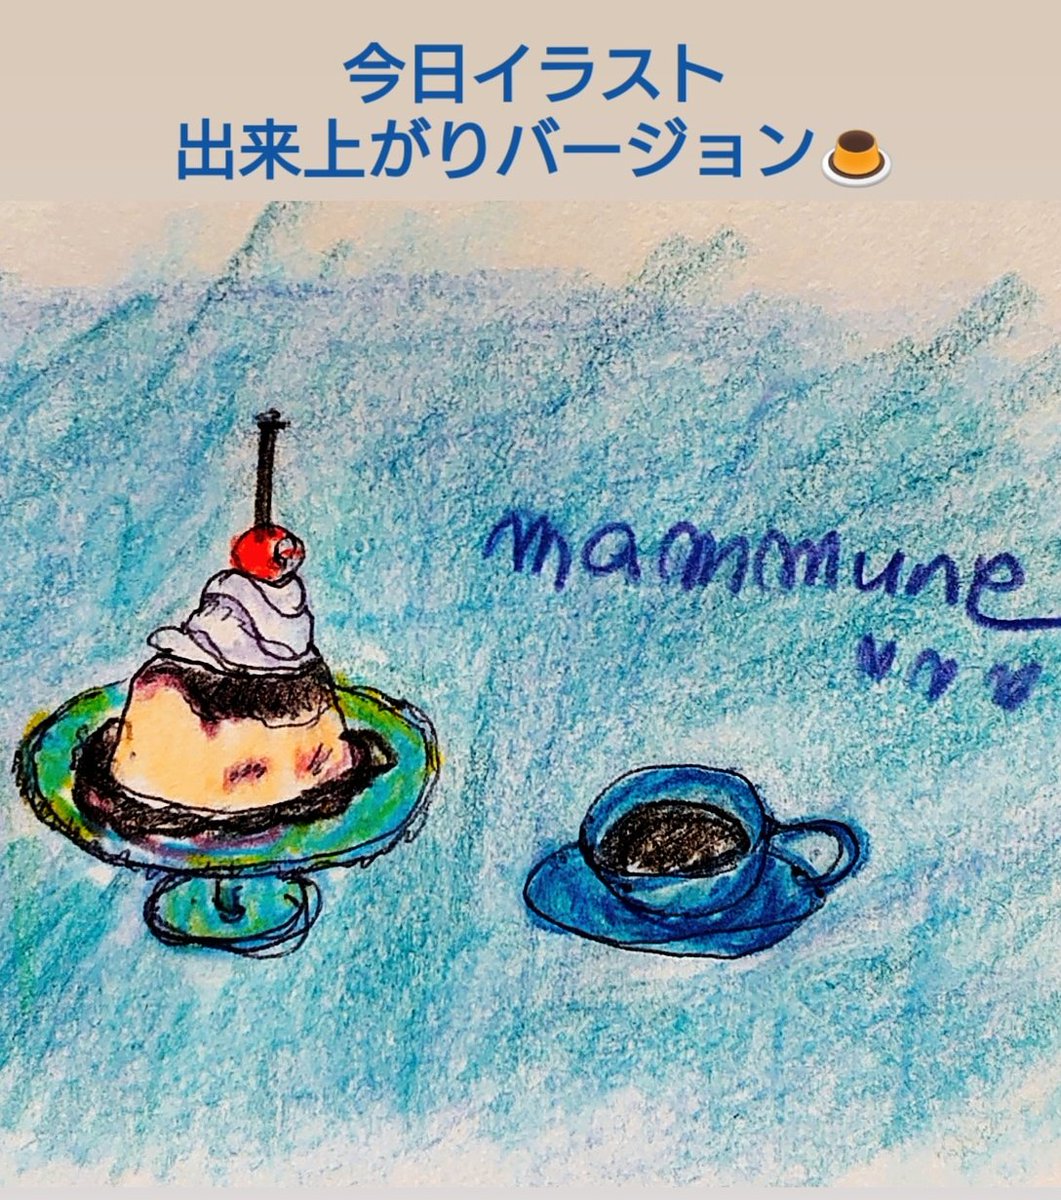 今日イラスト
出来上がりバージョン🍮
mammune